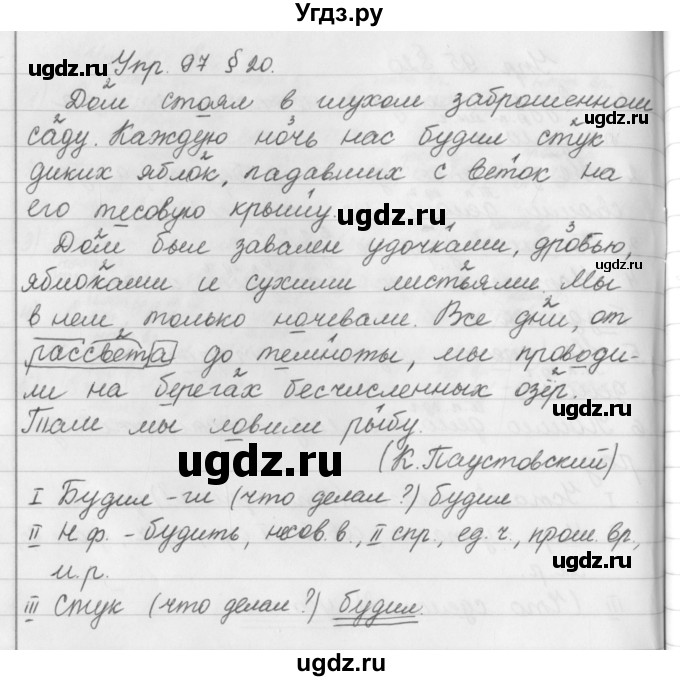 Угдз.ру
Упр. 97 § 20.
Дом стоял в глухом заброшенном
саду. Каждую ночь нас будил стук
диких яблок, падавших с веток на
его тесовую крышу.
Дом был завален удочками, дробью,
яблоками и сухими листьями. Мы
в нем только ночевали. Все дни, от
рассвета до темноты, мы проводи-
ли на берегах бесчисленных озёр.
Там мы ловили рыбу.
(К. Паустовский)
I Будил - гл (что делал?) будил
II Н.ф. - будить, несов.в., II спр., ед.ч., прош. вр.,
м.р.
III Стук (что делал?) будил.
ugdz.ru
ugdz.ru
ugdz.ru
ugdz.ru
ugdz.ru
ugdz.ru
ugdz.ru
ugdz.ru
ugdz.ru
ugdz.ru
ugdz.ru